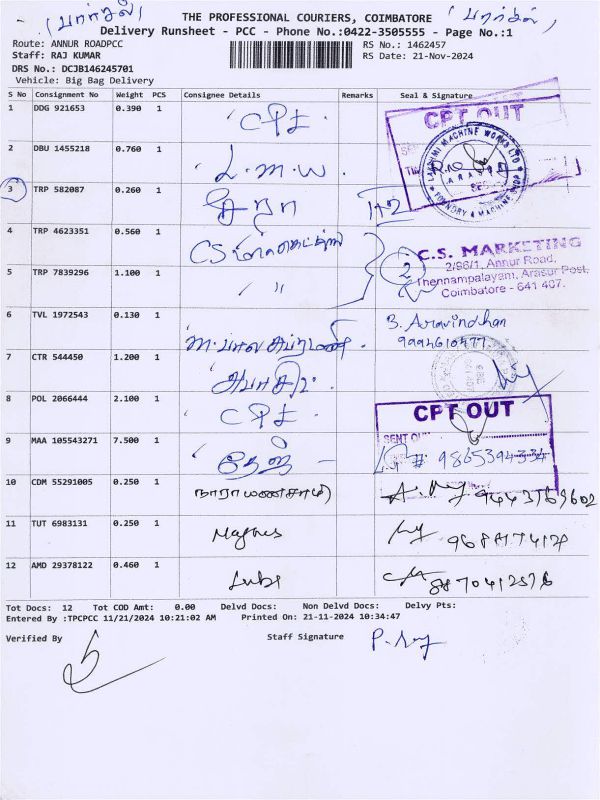 (பார்சல்)
(பார்சல்)
THE PROFESSIONAL COURIERS, COIMBATORE
Delivery Runsheet - PCC - Phone No.:0422-3505555 - Page No.:1
Route: ANNUR ROADPCC
RS No.: 1462457
Staff: RAJ KUMAR
RS Date: 21-Nov-2024
DRS No.: DCJB146245701
Vehicle: Big Bag Delivery
S No Consignment No Weight PCS Consignee Details Remarks Seal & Signature
1 DDG 921653 0.390 1 CPI CPT OUT
2 DBU 1455218 0.760 1 L.M.W LAKSHMI MACHINE WORKS LTD FOUNDRY & MACHINE SHOP
3 TRP 582087 0.260 1
4 TRP 4623351 0.560 1 CS மார்க்கெட்டிங் 2 C.S. MARKETING
2/96/1, Annur Road,
Thennampalayam, Arasur Post,
Coimbatore - 641 407.
5 TRP 7839296 1.100 1 "
6 TVL 1972543 0.130 1 M.பாலசுப்ரமணி. B. Aravindhan
9994610477
7 CTR 544450 1.200 1
8 POL 2066444 2.100 1 CPI CPT OUT
SENT OUT
9 MAA 105543271 7.500 1 9865394334
10 CDM 55291005 0.250 1 நாராயணசாமி 9443769602
11 TUT 6983131 0.250 1 Magnus
12 AMD 29378122 0.460 1 Lube
Tot Docs: 12 Tot COD Amt: 0.00 Delvd Docs: Non Delvd Docs: Delvy Pts:
Entered By :TPCPCC 11/21/2024 10:21:02 AM Printed On: 21-11-2024 10:34:47
Verified By Staff Signature